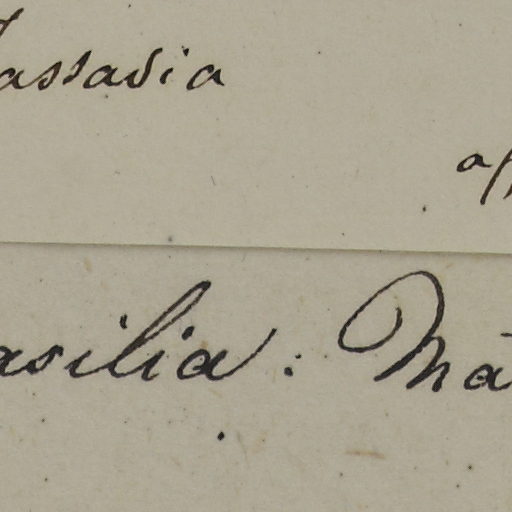 assavia
asilia. Ma